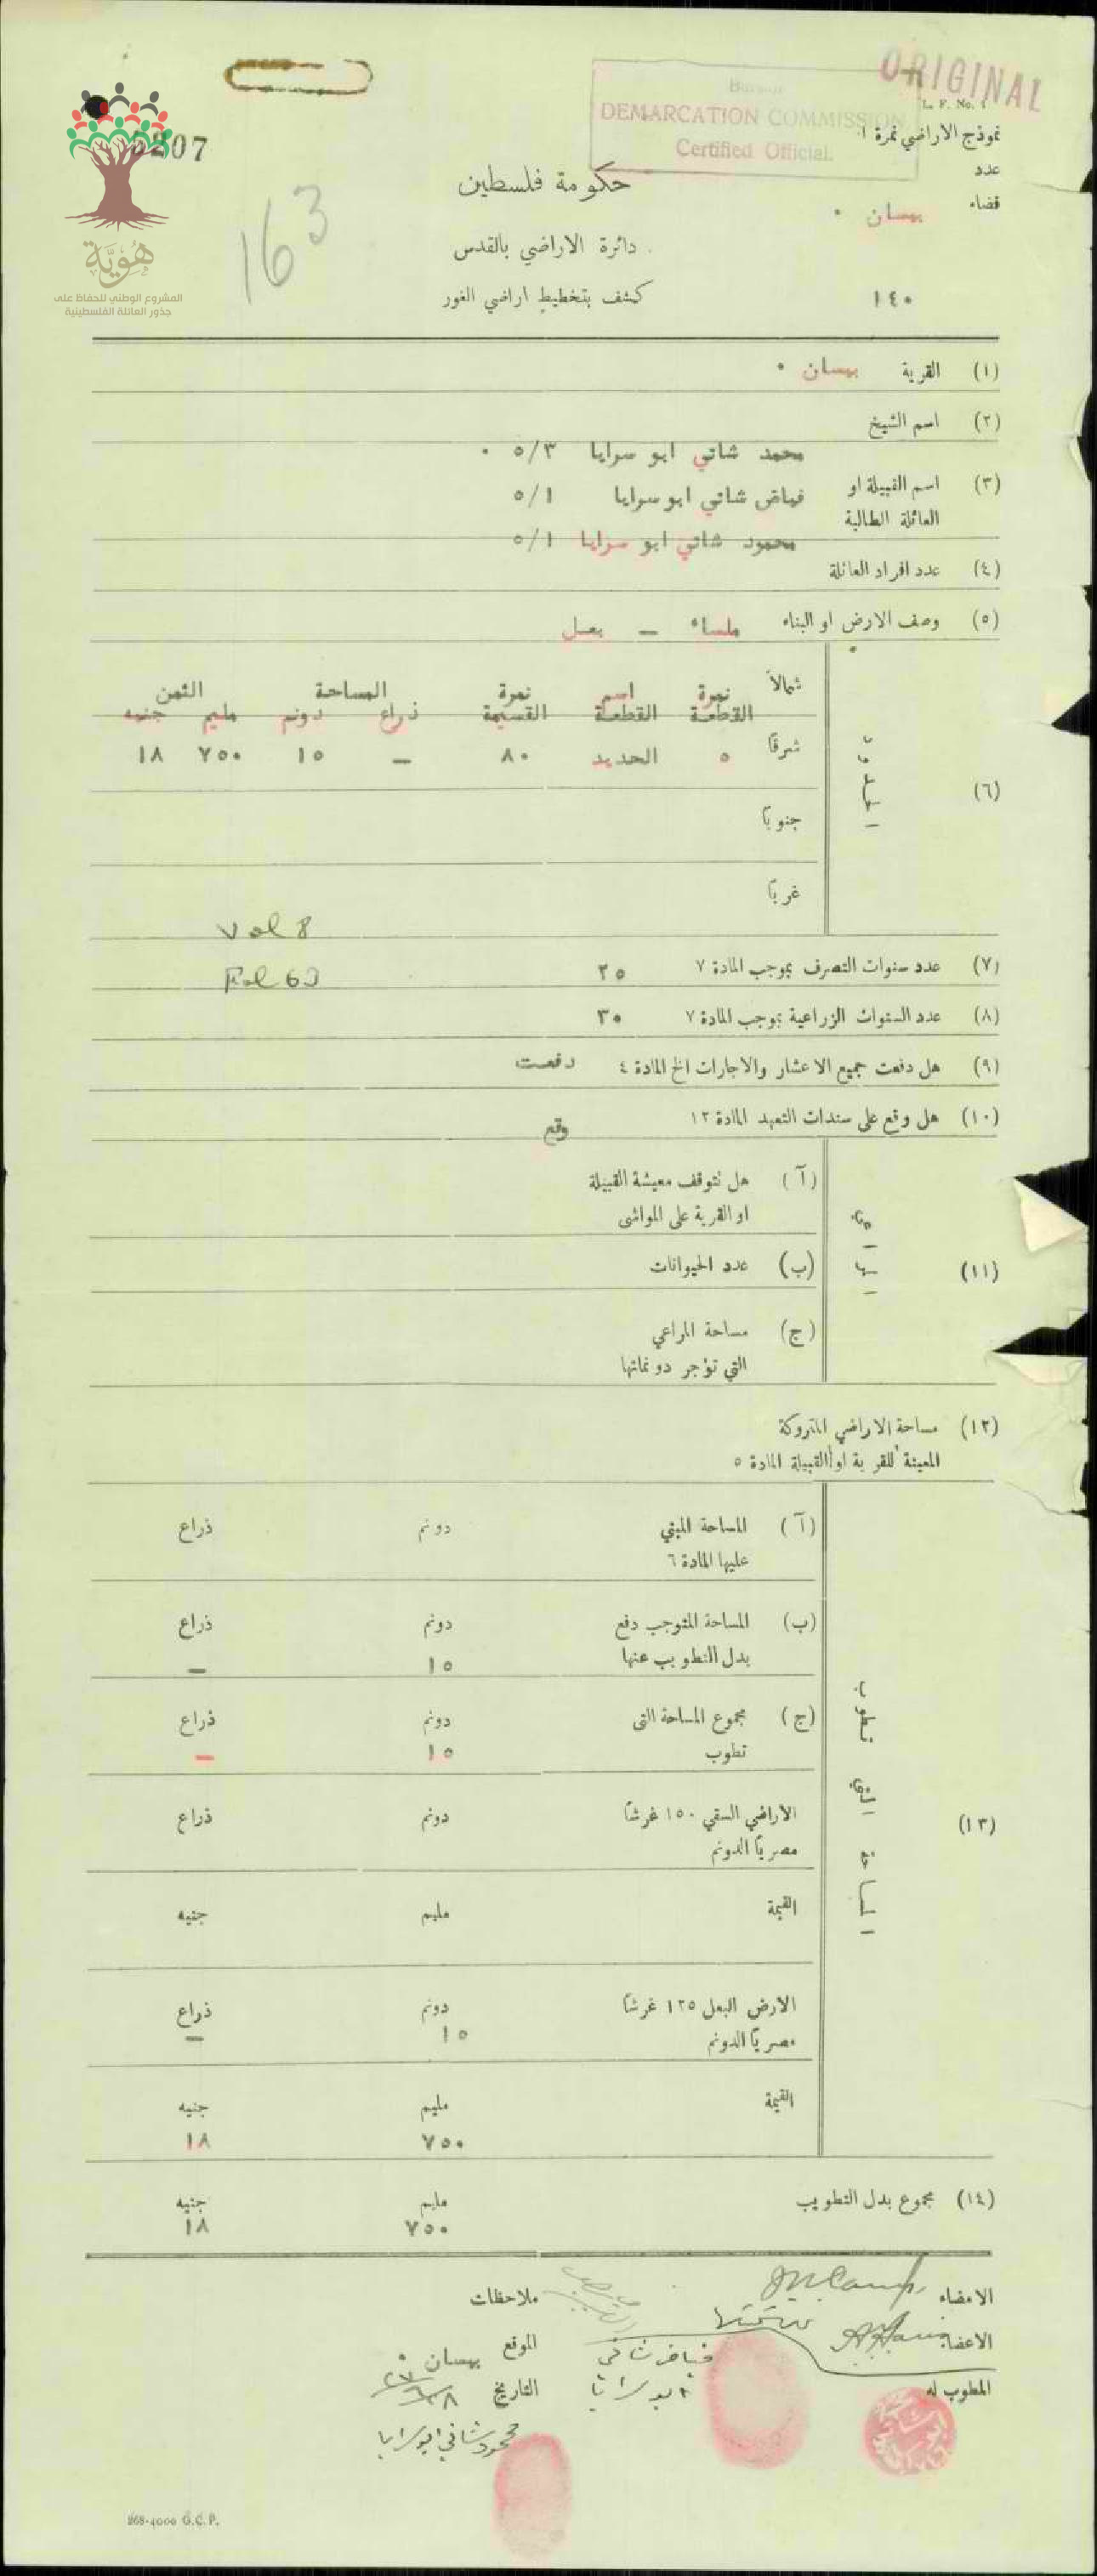 ORIGINAL
L. F. No. 1
DEMARCATION COMMISSION
Certified Official.
نموذج الاراضي نمرة ١
عدد
قضاء بيسان ٠
١٤٠
207
163
هُوِيَّة
المشروع الوطني للحفاظ على
جذور العائلة الفلسطينية
حكومة فلسطين
دائرة الاراضي بالقدس
كشف بتخطيط اراضي الغور
(١) القرية بيسان ٠
(٢) اسم الشيخ
محمد شاتي ابو سرايا ٥/٣ ٠
(٣) اسم القبيلة او فياض شاتي ابو سرايا ٥/١
العائلة الطالبة
محمود شاتي ابو سرايا ٥/١
(٤) عدد افراد العائلة
(٥) وصف الارض او البناء ملساء — بعل
(٦) الحدود
شمالاً نمرة القطعة اسم القطعة نمرة القسيمة المساحة ذراع دونم الثمن مليم جنيه
شرقاً ٥ الحديد ٨٠ — ١٥ ٧٥٠ ١٨
جنوباً
غرباً
Vol 8
Fol 63
(٧) عدد سنوات التصرف بموجب المادة ٧ ٢٥
(٨) عدد السنوات الزراعية بموجب المادة ٧ ٣٠
(٩) هل دفعت جميع الاعشار والاجارات الخ المادة ٤ دفعت
(١٠) هل وقع على سندات التعهد المادة ١٢ وقع
(١١)
(آ) هل تتوقف معيشة القبيلة
او القرية على المواشي
(ب) عدد الحيوانات
(ج) مساحة المراعي
التي تؤجر دونماتها
(١٢) مساحة الاراضي المتروكة
المعينة للقرية او القبيلة المادة ٥
(١٣) المساحة التي تطوب
(آ) المساحة المبني دونم ذراع
عليها المادة ٦
(ب) المساحة المتوجب دفع دونم ذراع
بدل التطويب عنها ١٥ —
(ج) مجموع المساحة التي دونم ذراع
تطوب ١٥ —
الاراضي السقي ١٥٠ غرشاً دونم ذراع
مصرياً الدونم
القيمة مليم جنيه
الارض البعل ١٢٥ غرشاً دونم ذراع
مصرياً الدونم ١٥ —
القيمة مليم جنيه
٧٥٠ ١٨
(١٤) مجموع بدل التطويب مليم جنيه
٧٥٠ ١٨
الامضاء ملاحظات
الاعضاء الموقع بيسان
المطوب له فياض شاتي ابو سرايا التاريخ
محمود شاتي ابو سرايا
868-4000 G.C.P.